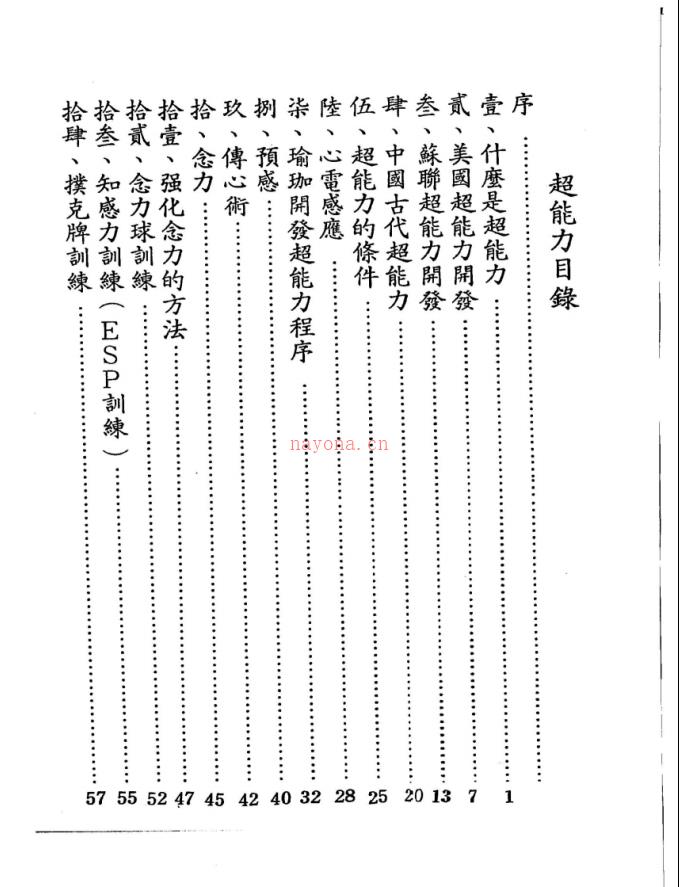 超能力目錄
序……………………
壹、什麼是超能力……………………1
貳、美國超能力開發……………………7
叁、蘇聯超能力開發……………………13
肆、中國古代超能力……………………20
伍、超能力的條件……………………25
陸、心電感應……………………28
柒、瑜珈開發超能力程序……………………32
捌、預感……………………40
玖、傳心術……………………42
拾、念力……………………45
拾壹、强化念力的方法……………………47
拾貳、念力球訓練……………………52
拾叁、知感力訓練(ESP訓練)……………………55
拾肆、撲克牌訓練……………………57
nayona.cn
1